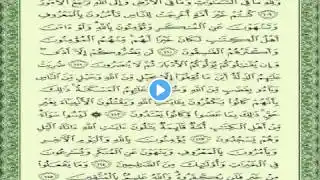 وَلِلَّهِ مَا فِي السَّمٰوَاتِ وَمَا فِي الْأَرْضِ وَإِلَى اللَّهِ تُرْجَعُ الْأُمُورُ
﴿١٠٩﴾ كُنْتُمْ خَيْرَ أُمَّةٍ أُخْرِجَتْ لِلنَّاسِ تَأْمُرُونَ بِالْمَعْرُوفِ
وَتَنْهَوْنَ عَنِ الْمُنْكَرِ وَتُؤْمِنُونَ بِاللَّهِ وَلَوْ اٰمَنَ
أَهْلُ الْكِتَابِ لَكَانَ خَيْرًا لَهُمْ مِنْهُمُ الْمُؤْمِنُونَ
وَأَكْثَرُهُمُ الْفَاسِقُونَ ﴿١١٠﴾ لَنْ يَضُرُّوكُمْ إِلَّا أَذًى
وَإِنْ يُقَاتِلُوكُمْ يُوَلُّوكُمُ الْأَدْبَارَ ثُمَّ لَا يُنْصَرُونَ ﴿١١١﴾ ضُرِبَتْ
عَلَيْهِمُ الذِّلَّةُ أَيْنَ مَا ثُقِفُوا إِلَّا بِحَبْلٍ مِنَ اللَّهِ وَحَبْلٍ مِنَ
النَّاسِ وَبَاءُوا بِغَضَبٍ مِنَ اللَّهِ وَضُرِبَتْ عَلَيْهِمُ الْمَسْكَنَةُ ذٰلِكَ
بِأَنَّهُمْ كَانُوا يَكْفُرُونَ بِاٰيَاتِ اللَّهِ وَيَقْتُلُونَ الْأَنْبِيَاءَ بِغَيْرِ
حَقٍّ ذٰلِكَ بِمَا عَصَوْا وَكَانُوا يَعْتَدُونَ ﴿١١٢﴾ لَيْسُوا سَوَاءً
مِنْ أَهْلِ الْكِتَابِ أُمَّةٌ قَائِمَةٌ يَتْلُونَ اٰيَاتِ اللَّهِ اٰنَاءَ اللَّيْلِ
وَهُمْ يَسْجُدُونَ ﴿١١٣﴾ يُؤْمِنُونَ بِاللَّهِ وَالْيَوْمِ الْاٰخِرِ
وَيَأْمُرُونَ بِالْمَعْرُوفِ وَيَنْهَوْنَ عَنِ الْمُنْكَرِ وَيُسَارِعُونَ
فِي الْخَيْرَاتِ وَأُولٰئِكَ مِنَ الصَّالِحِينَ ﴿١١٤﴾ وَمَا يَفْعَلُوا
مِنْ خَيْرٍ فَلَنْ يُكْفَرُوهُ وَاللَّهُ عَلِيمٌ بِالْمُتَّقِينَ ﴿١١٥﴾